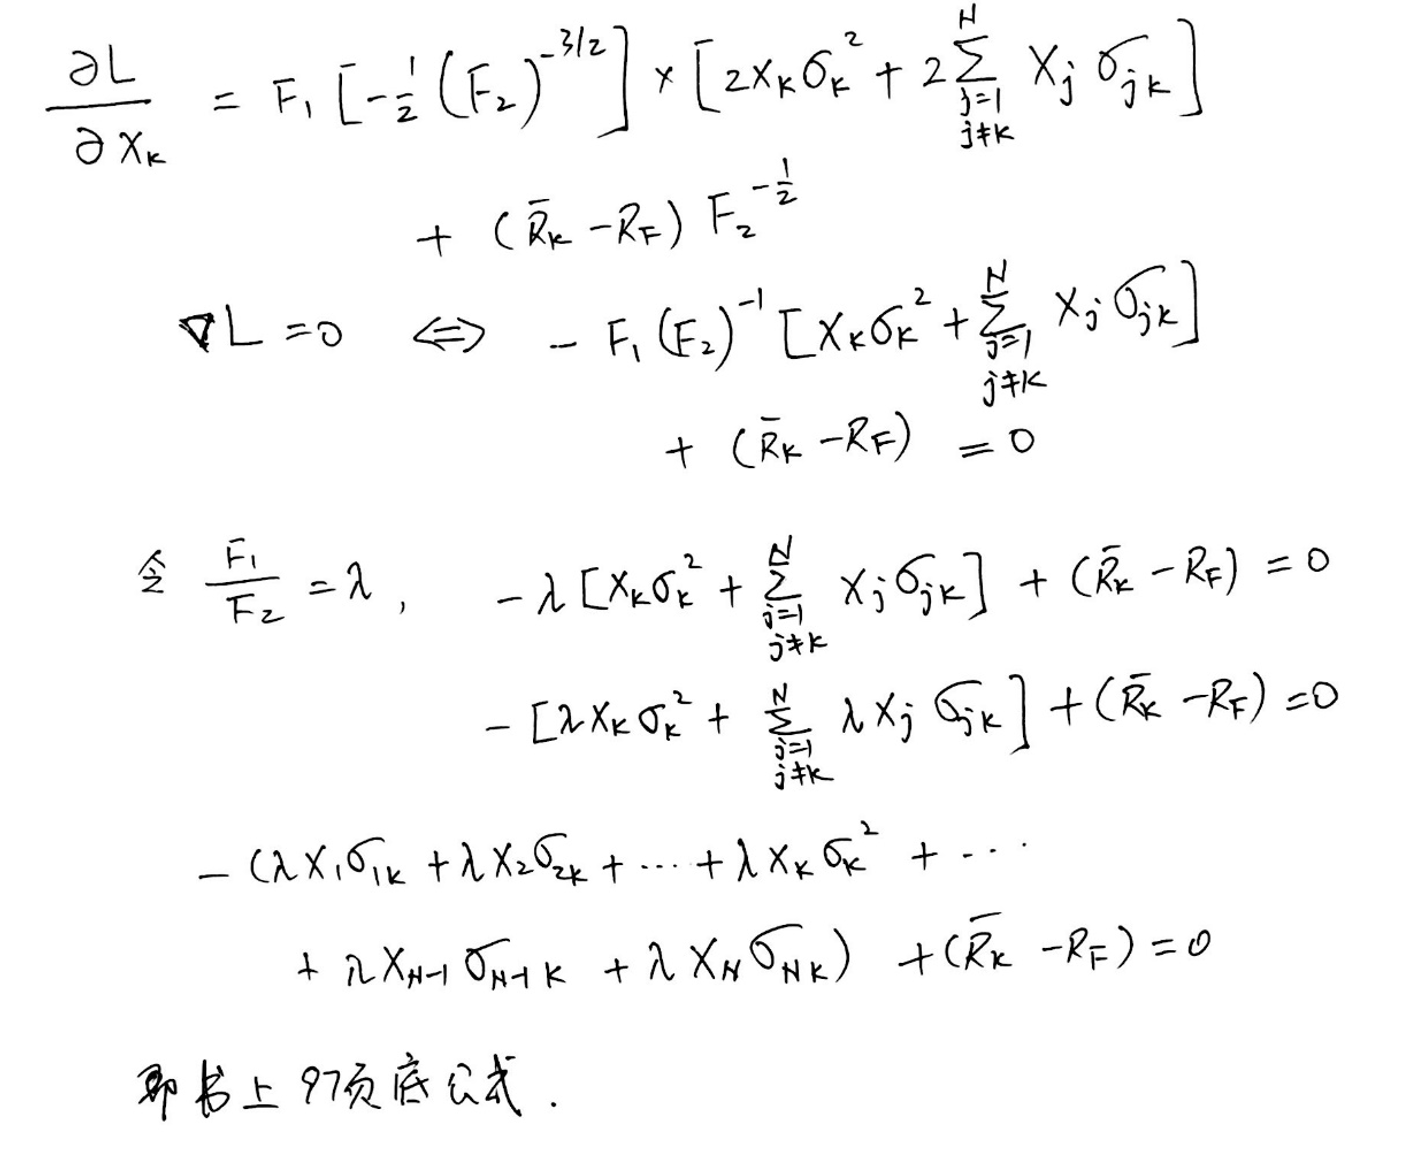 ∂L/∂X_K = F₁ [-½ (F₂)^{-3/2}] × [2X_K σ_K² + 2 Σ_{j=1, j≠K}^{N} X_j σ_{jK}]
+ (R̄_K - R_F) F₂^{-1/2}
∇L = 0 ⟺ - F₁ (F₂)^{-1} [X_K σ_K² + Σ_{j=1, j≠K}^{N} X_j σ_{jK}]
+ (R̄_K - R_F) = 0
令 F₁/F₂ = λ, -λ [X_K σ_K² + Σ_{j=1, j≠K}^{N} X_j σ_{jK}] + (R̄_K - R_F) = 0
- [λX_K σ_K² + Σ_{j=1, j≠K}^{N} λX_j σ_{jK}] + (R̄_K - R_F) = 0
- (λX₁σ_{1K} + λX₂σ_{2K} + ··· + λX_K σ_K² + ···
+ λX_{N-1} σ_{N-1 K} + λX_N σ_{NK}) + (R̄_K - R_F) = 0
即书上 97页底公式.